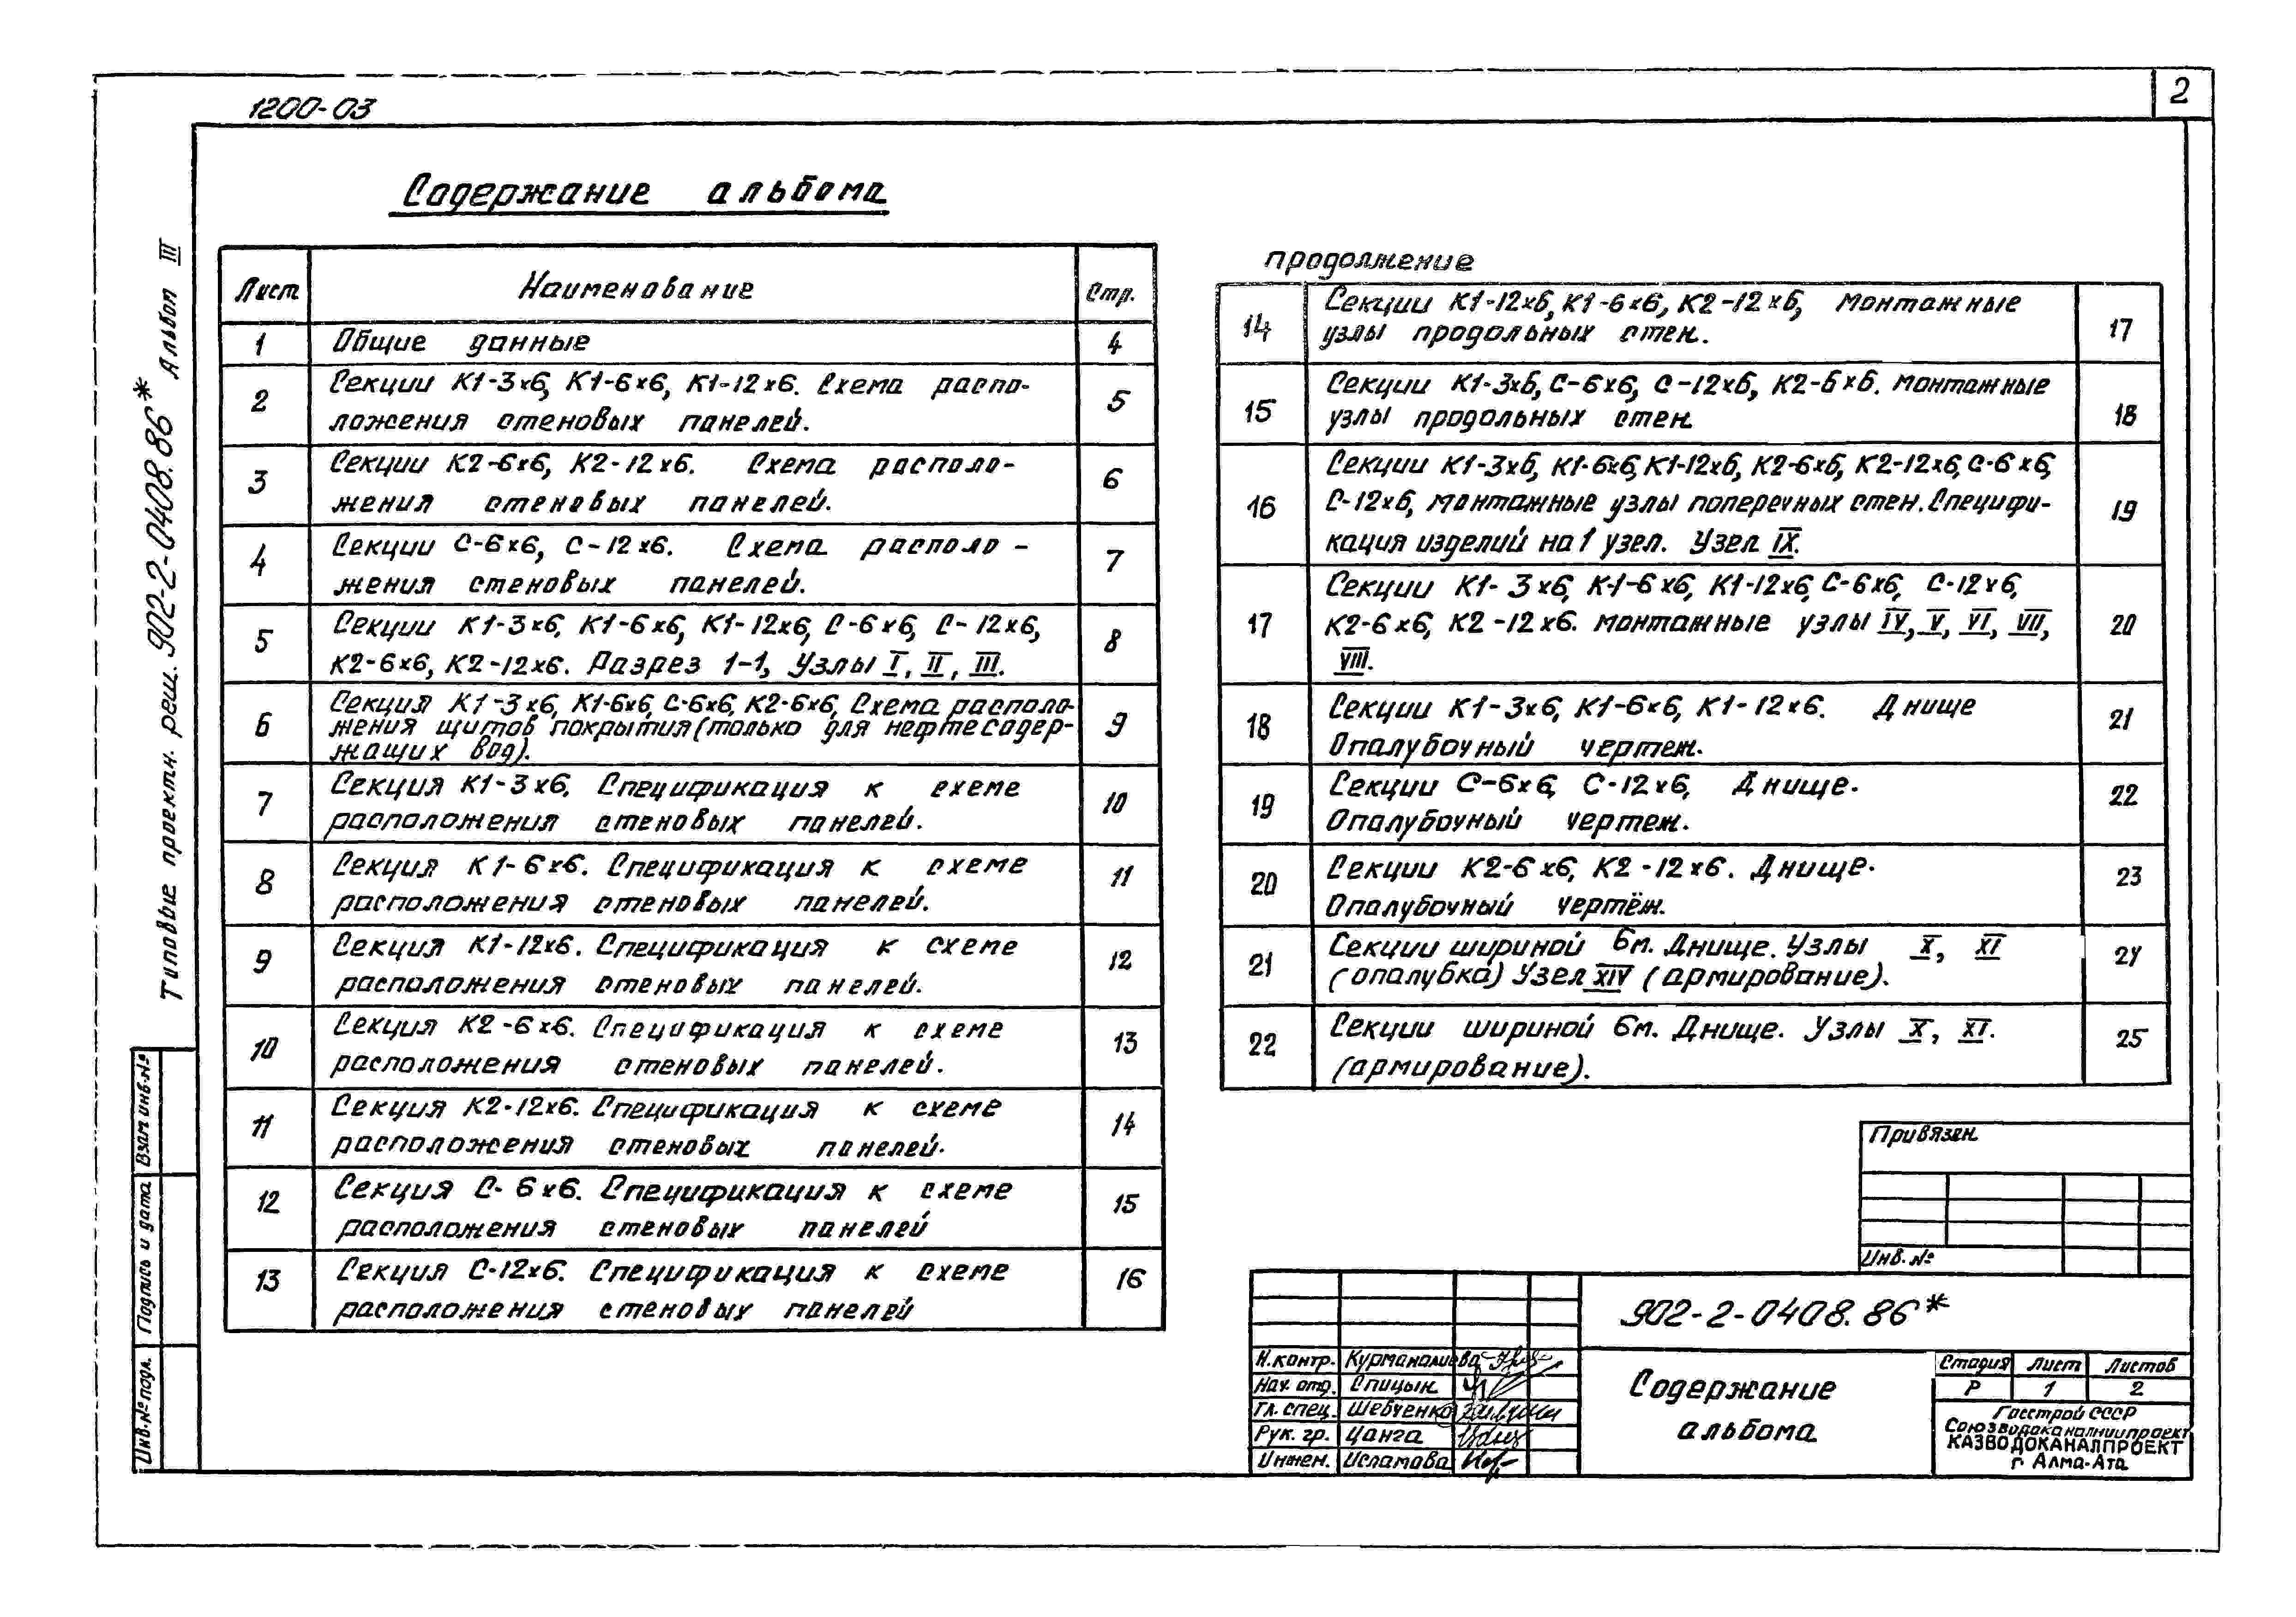 1200-03
2
Содержание альбома
Лист Наименование Стр.
1 Общие данные 4
2 Секции К1-3х6, К1-6х6, К1-12х6. Схема распо-
ложения стеновых панелей. 5
3 Секции К2-6х6, К2-12х6. Схема располо-
жения стеновых панелей. 6
4 Секции С-6х6, С-12х6. Схема располо-
жения стеновых панелей. 7
5 Секции К1-3х6, К1-6х6, К1-12х6, С-6х6, С-12х6,
К2-6х6, К2-12х6. Разрез 1-1, Узлы I, II, III. 8
6 Секция К1-3х6, К1-6х6, С-6х6, К2-6х6, Схема располо-
жения щитов покрытия (только для нефтесодер-
жащих вод). 9
7 Секция К1-3х6. Спецификация к схеме
расположения стеновых панелей. 10
8 Секция К1-6х6. Спецификация к схеме
расположения стеновых панелей. 11
9 Секция К1-12х6. Спецификация к схеме
расположения стеновых панелей. 12
10 Секция К2-6х6. Спецификация к схеме
расположения стеновых панелей. 13
11 Секция К2-12х6. Спецификация к схеме
расположения стеновых панелей. 14
12 Секция С-6х6. Спецификация к схеме
расположения стеновых панелей 15
13 Секция С-12х6. Спецификация к схеме
расположения стеновых панелей 16
продолжение
14 Секции К1-12х6, К1-6х6, К2-12х6, монтажные
узлы продольных стен. 17
15 Секции К1-3х6, С-6х6, С-12х6, К2-6х6. монтажные
узлы продольных стен. 18
16 Секции К1-3х6, К1-6х6, К1-12х6, К2-6х6, К2-12х6, С-6х6,
С-12х6, монтажные узлы поперечных стен. Специфи-
кация изделий на 1 узел. Узел IX. 19
17 Секции К1-3х6, К-1-6х6, К1-12х6, С-6х6, С-12х6,
К2-6х6, К2-12х6. монтажные узлы IV, V, VI, VII,
VIII. 20
18 Секции К1-3х6, К1-6х6, К1-12х6. Днище
Опалубочный чертеж. 21
19 Секции С-6х6, С-12х6, Днище.
Опалубочный чертеж. 22
20 Секции К2-6х6, К2-12х6. Днище.
Опалубочный чертёж. 23
21 Секции шириной 6м. Днище. Узлы X, XI
(опалубка) Узел XIV (армирование). 24
22 Секции шириной 6м. Днище. Узлы X, XI.
(армирование). 25
Типовые проектн. реш. 902-2-0408.86* Альбом III
Взам инв.№
Подпись и дата
Инв.№ подл.
Привязан
Инв.№
902-2-0408.86*
Н.контр. Курманалиева
Нач. отд. Спицын
Гл. спец. Шевченко
Рук. гр. Цанга
Инжен. Исламова
Содержание
альбома
Стадия Лист Листов
Р 1 2
Госстрой СССР
Союзводоканалниипроект
КАЗВОДОКАНАЛПРОЕКТ
г. Алма-Ата